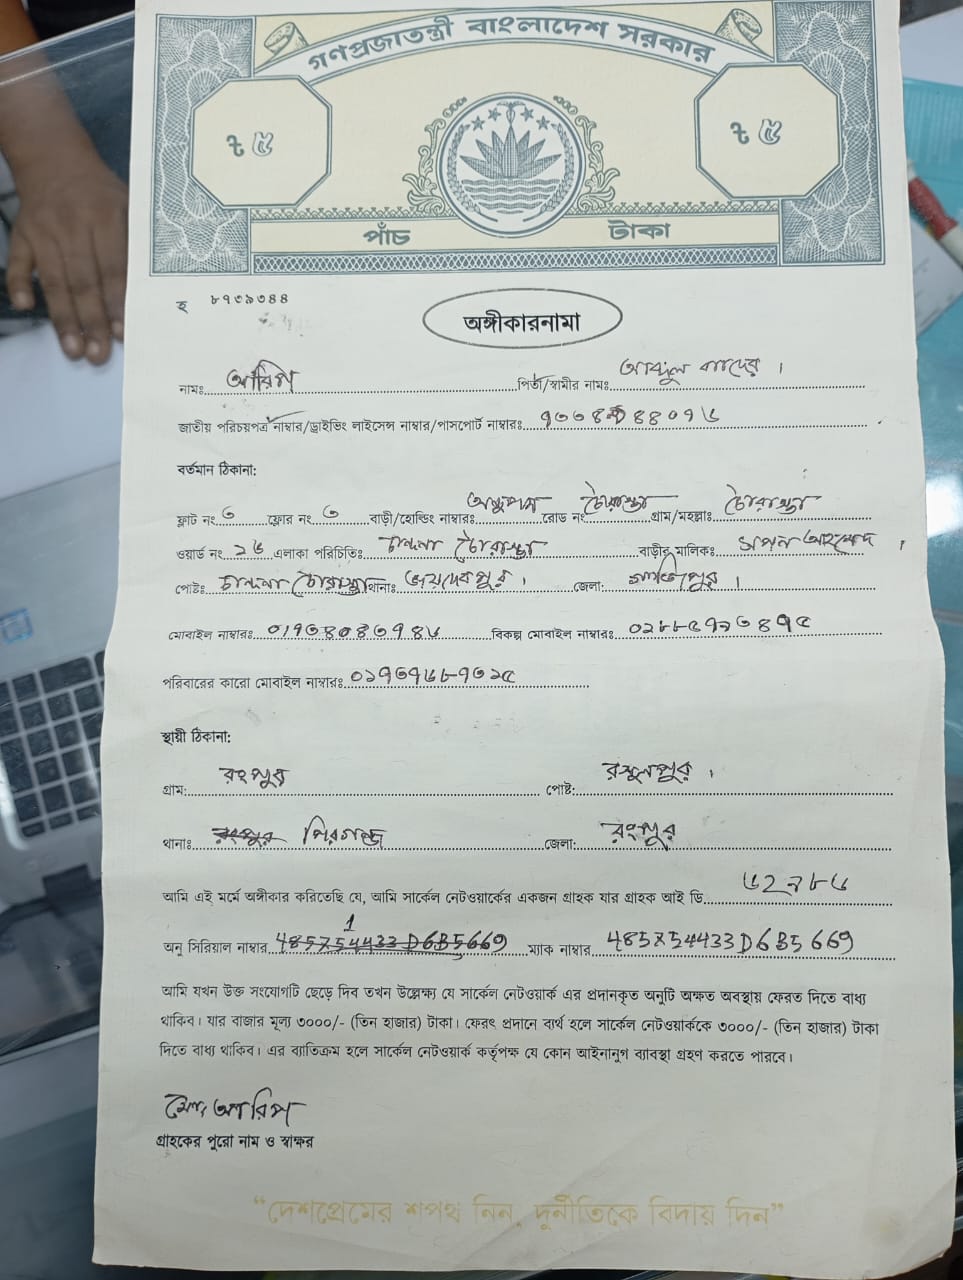 গণপ্রজাতন্ত্রী বাংলাদেশ সরকার
৳ ৫ ৳ ৫
পাঁচ টাকা
হ ৮৭৩৯৩৪৪
অঙ্গীকারনামা
নামঃ আরিফ পিতা/স্বামীর নামঃ আব্দুল কাদের।
জাতীয় পরিচয়পত্র নাম্বার/ড্রাইভিং লাইসেন্স নাম্বার/পাসপোর্ট নাম্বারঃ
বর্তমান ঠিকানা:
ফ্লাট নং ৩ ফ্লোর নং ৩ বাড়ী/হোল্ডিং নাম্বারঃ রোড নং চৌরাস্তা গ্রাম/মহল্লাঃ চৌরাস্তা
ওয়ার্ড নং ১৬ এলাকা পরিচিতিঃ চান্দনা চৌরাস্তা বাড়ীর মালিকঃ আহম্মেদ
পোষ্টঃ চান্দনা চৌরাস্তা থানাঃ জয়দেবপুর। জেলা: গাজীপুর।
মোবাইল নাম্বারঃ বিকল্প মোবাইল নাম্বারঃ
পরিবারের কারো মোবাইল নাম্বারঃ
স্থায়ী ঠিকানা:
গ্রাম: রংপুর পোষ্ট: রসুলপুর।
থানাঃ রংপুর পিরগঞ্জ জেলা: রংপুর
আমি এই মর্মে অঙ্গীকার করিতেছি যে, আমি সার্কেল নেটওয়ার্কের একজন গ্রাহক যার গ্রাহক আই ডি. ৬২৭৮৬
1
অনু সিরিয়াল নাম্বার 485754433D6B5669 ম্যাক নাম্বার 485754433D6B5669
আমি যখন উক্ত সংযোগটি ছেড়ে দিব তখন উল্লেক্ষ্য যে সার্কেল নেটওয়ার্ক এর প্রদানকৃত অনুটি অক্ষত অবস্থায় ফেরত দিতে বাধ্য
থাকিব। যার বাজার মূল্য ৩০০০/- (তিন হাজার) টাকা। ফেরৎ প্রদানে ব্যর্থ হলে সার্কেল নেটওয়ার্ককে ৩০০০/- (তিন হাজার) টাকা
দিতে বাধ্য থাকিব। এর ব্যতিক্রম হলে সার্কেল নেটওয়ার্ক কর্তৃপক্ষ যে কোন আইনানুগ ব্যবস্থা গ্রহণ করতে পারবে।
মোঃ আরিফ
গ্রাহকের পুরো নাম ও স্বাক্ষর
“দেশপ্রেমের শপথ নিন, দুর্নীতিকে বিদায় দিন”